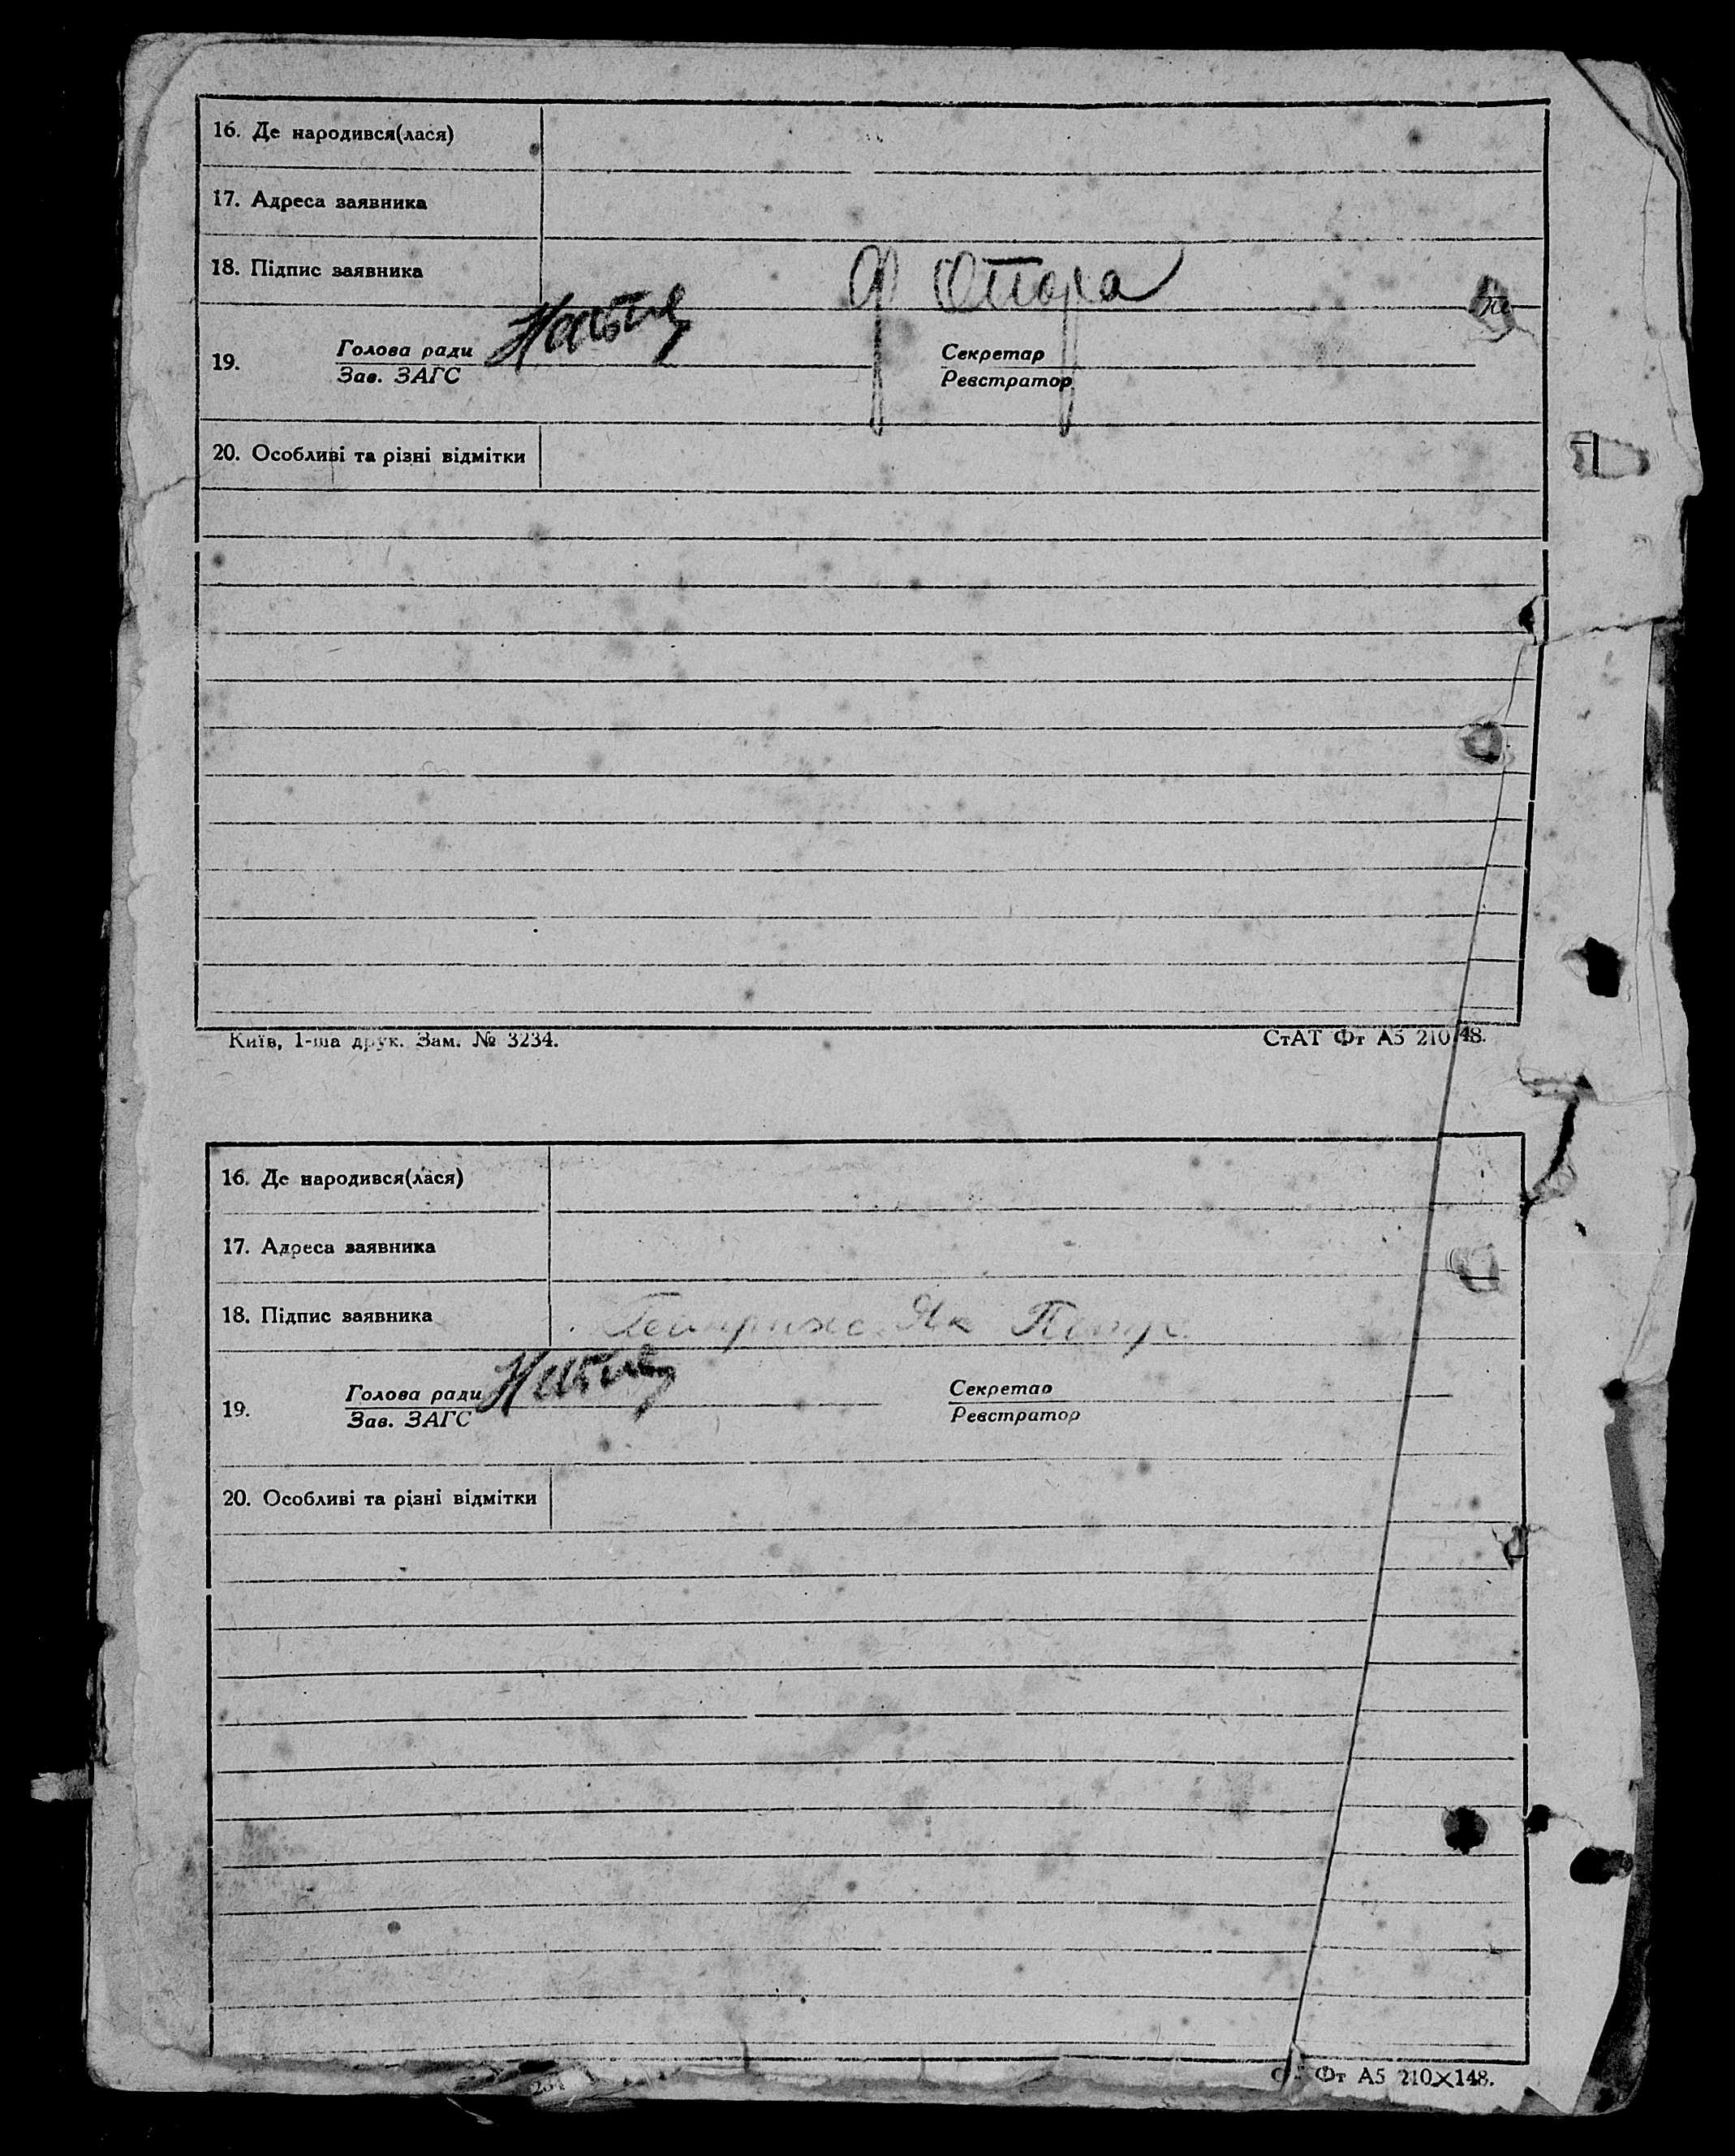 16. Де народився(лася)
17. Адреса заявника
18. Підпис заявника
19. Голова ради
Зав. ЗАГС
Секретар
Реєстратор
20. Особливі та різні відмітки
Київ, 1-ша друк. Зам. № 3234.
СтАТ Фт А5 210 48.
16. Де народився(лася)
17. Адреса заявника
18. Підпис заявника
19. Голова ради
Зав. ЗАГС
Секретар
Реєстратор
20. Особливі та різні відмітки
Фт А5 210×148.